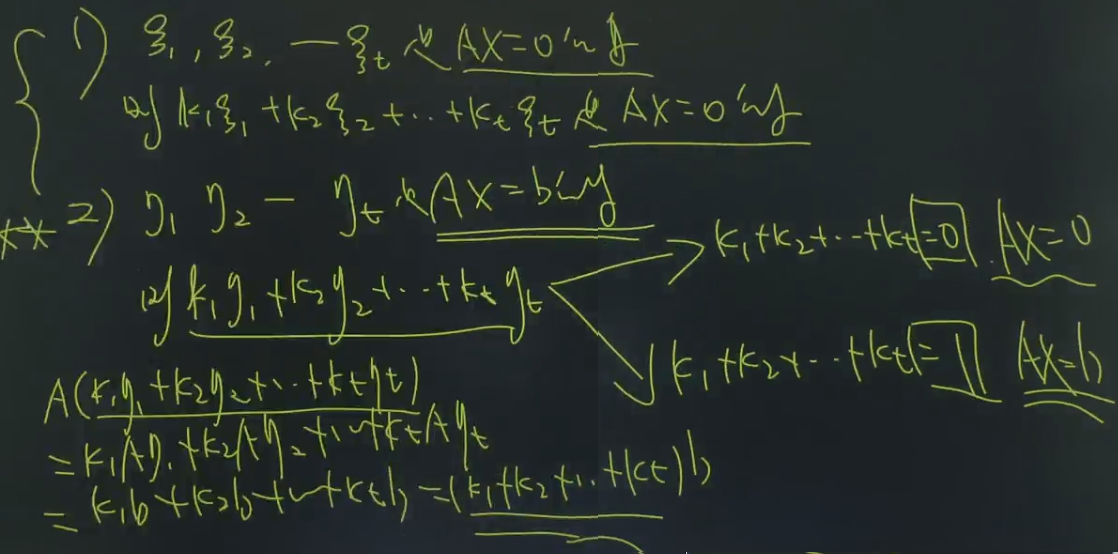 1) ξ₁, ξ₂, — ξₜ 是 AX=0的解
则 k₁ξ₁+k₂ξ₂+…+kₜξₜ 是 AX=0的解
** 2) η₁ η₂ — ηₜ 是 AX=b的解
则 k₁η₁+k₂η₂+…+kₜηₜ
k₁+k₂+…+kₜ=0 AX=0
k₁+k₂+…+kₜ=1 AX=b
A(k₁η₁+k₂η₂+…+kₜηₜ)
=k₁Aη₁+k₂Aη₂+…+kₜAηₜ
=k₁b+k₂b+…+kₜb=(k₁+k₂+…+kₜ)b